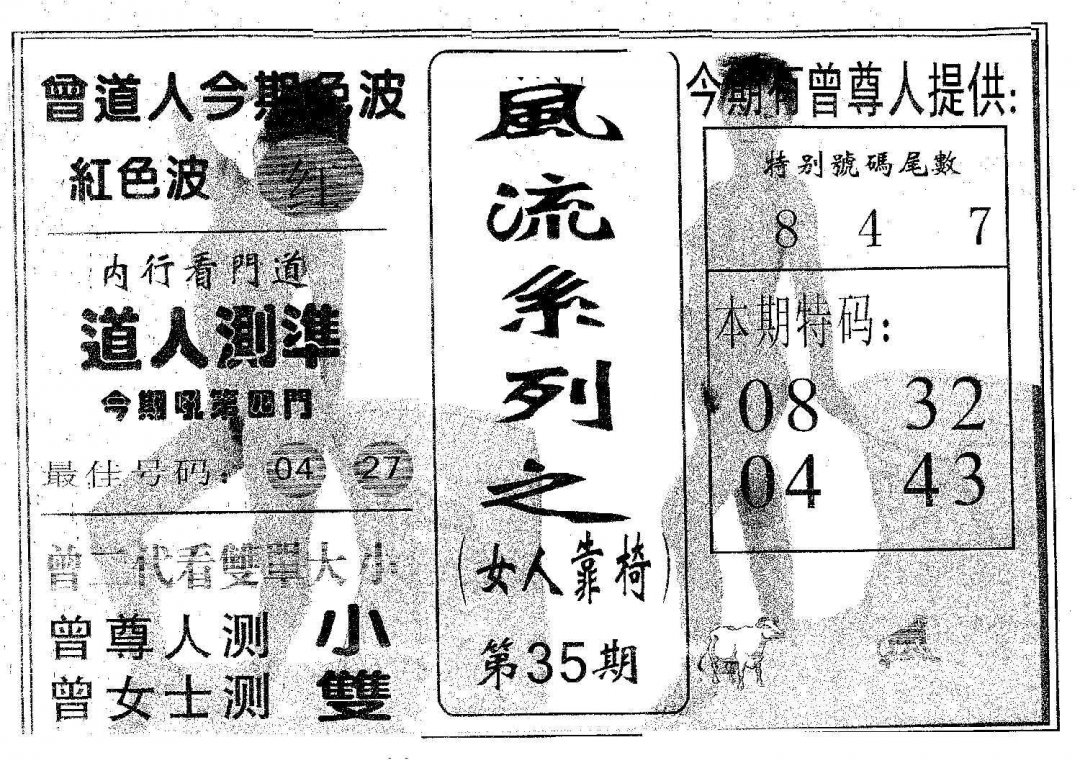 曾道人今期色波
紅色波 红
内行看門道
道人測準
今期吼第四門
最佳号码: 04 27
曾二代看雙單大小
曾尊人测 小
曾女士测 雙
風流系列之
(女人靠椅)
第35期
今期有曾尊人提供:
特别號碼尾數
8 4 7
本期特码:
08 32
04 43